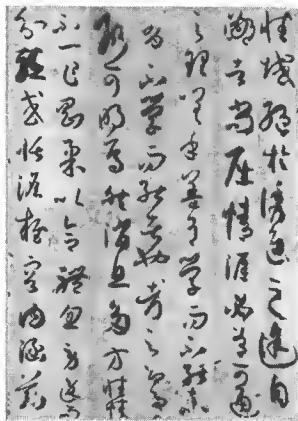 性域絕於誘進之途自
鄙者尚屈情涯必有可通
之理嗟乎蓋有學而不能未
有不學而能者也考之即事
斷可明焉然消息多方性情
不一乍剛柔以合體忽勞逸而
分驅或恬澹雍容內涵筋